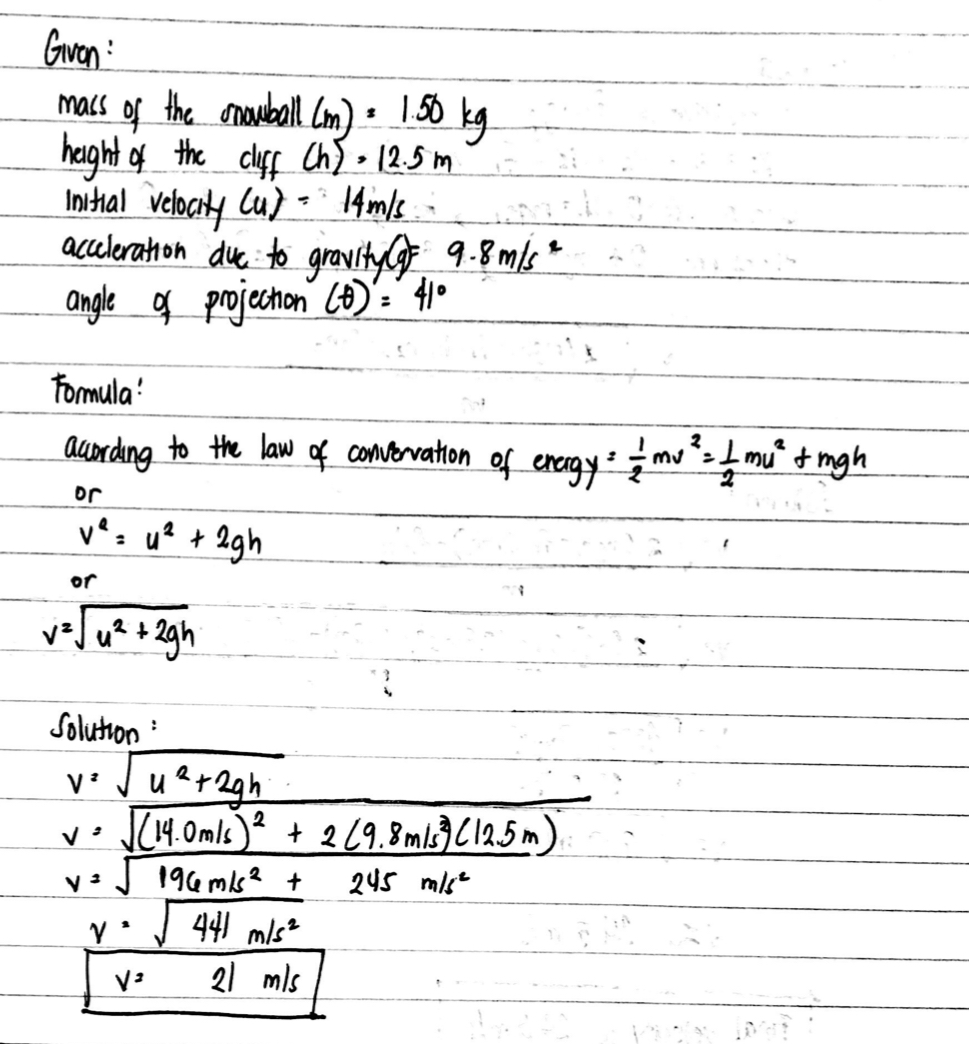 Given :
mass of the snowball (m) = 1.50 kg
height of the cliff (h) = 12.5 m
Initial velocity (u) = 14 m/s
acceleration due to gravity (g) = 9.8 m/s²
angle of projection (θ) = 41°
Formula :
according to the law of convervation of energy = 1/2 mv² = 1/2 mu² + mgh
or
v² = u² + 2gh
or
v = √u² + 2gh
Solution :
v = √u² + 2gh
v = √(14.0 m/s)² + 2 (9.8 m/s²) (12.5 m)
v = √196 m/s² + 245 m/s²
v = √441 m/s²
v = 21 m/s